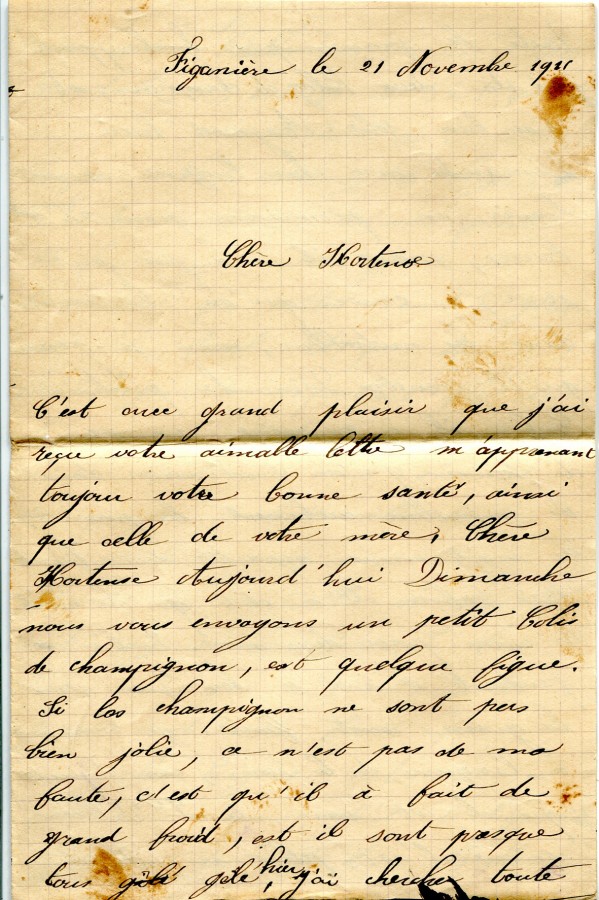 Figanière le 21 Novembre 1921
Chère Hortense
C'est avec grand plaisir que j'ai
reçu votre aimable lettre m'apprenant
toujour votre bonne santé, ainsi
que celle de votre mère, Chère
Hortense Aujourd'hui Dimanche
nous vous envoyons un petit Colis
de champignon, est quelque figue.
Si les champignon ne sont pas
bien jolie, ce n'est pas de ma
faute, c'est qu'il à fait de
grand froid, est il sont presque
tous gelé hier, j'ai cherche toute